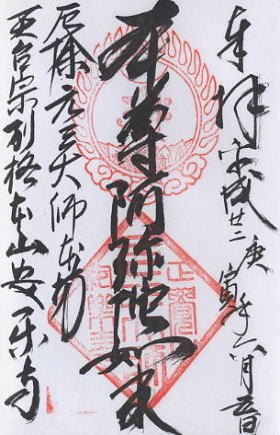 奉拝 平成廿二庚寅年六月吉日
本尊阿弥陀如来
厄除元三大師
天台宗別格本山安楽寺